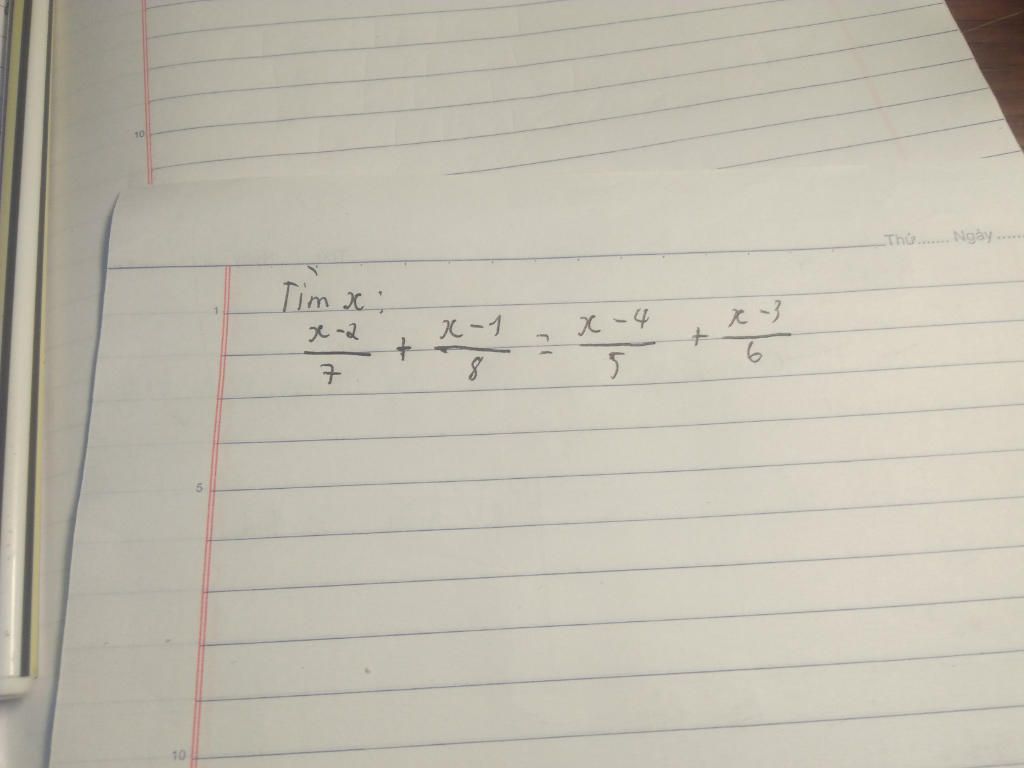 10
Thứ....... Ngày......
1
Tìm x:
x-2/7 + x-1/8 = x-4/5 + x-3/6
5
10